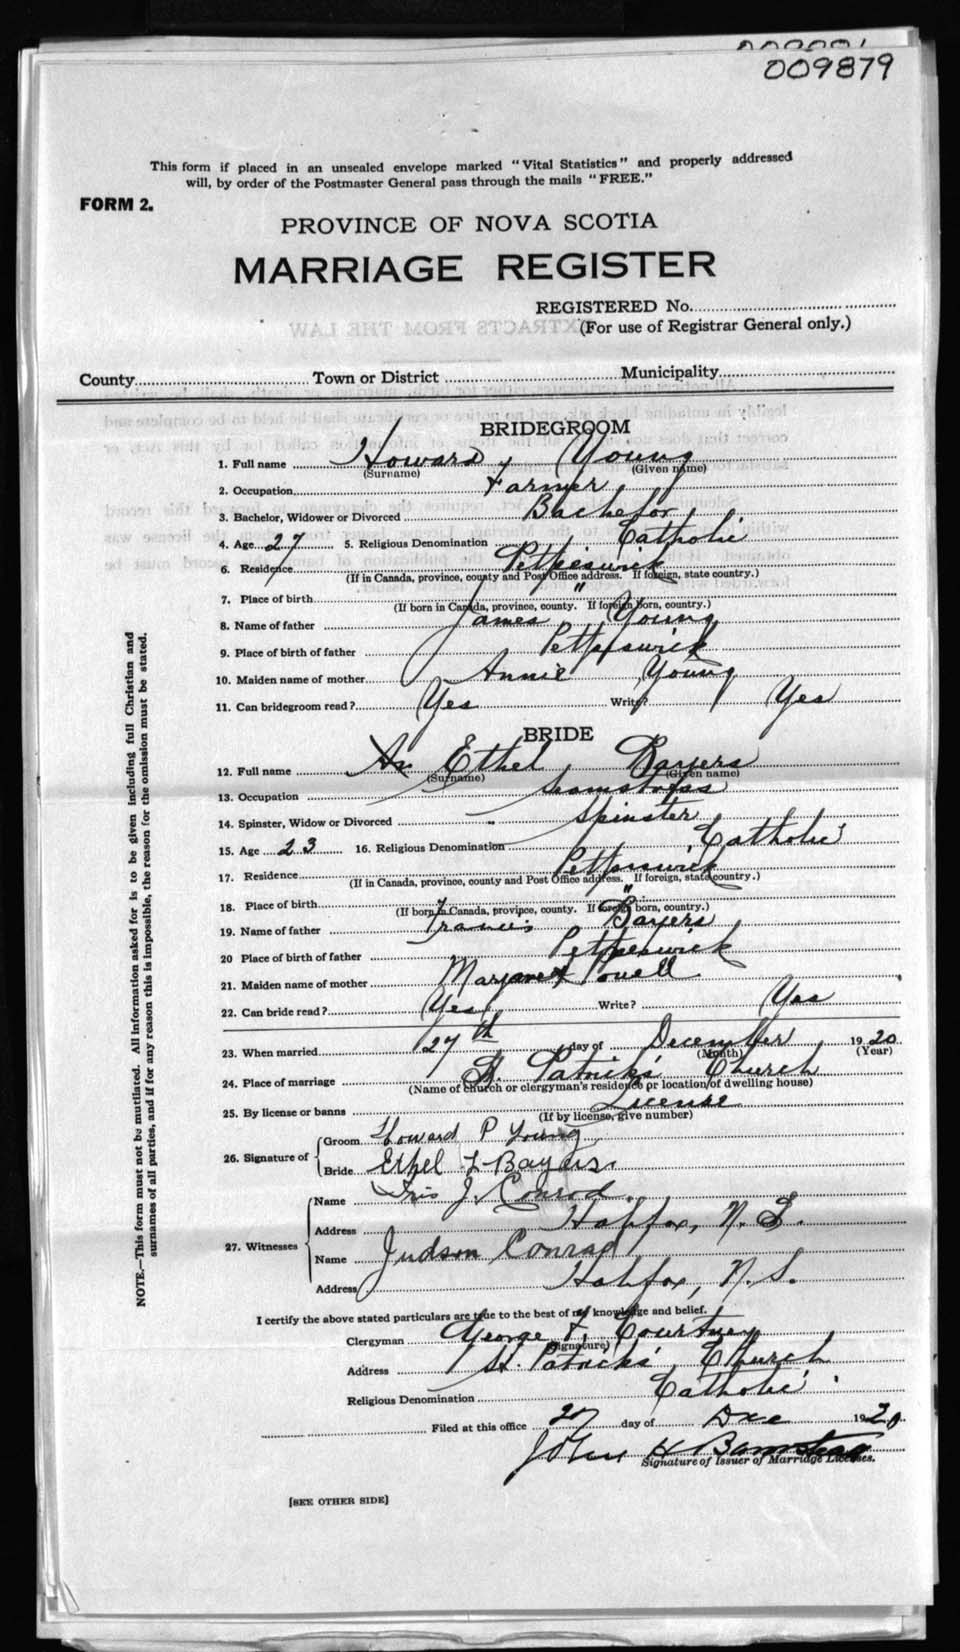 009879
This form if placed in an unsealed envelope marked "Vital Statistics" and properly addressed
will, by order of the Postmaster General pass through the mails "FREE."
FORM 2.
PROVINCE OF NOVA SCOTIA
MARRIAGE REGISTER
REGISTERED No.
(For use of Registrar General only.)
County Town or District Municipality
BRIDEGROOM
1. Full name Howard Young
(Surname) (Given name)
2. Occupation Farmer
3. Bachelor, Widower or Divorced Bachelor
4. Age 27 5. Religious Denomination Catholic
6. Residence Petpeswick
(If in Canada, province, county and Post Office address. If foreign, state country.)
7. Place of birth "
(If born in Canada, province, county. If foreign born, country.)
8. Name of father James Young
9. Place of birth of father Petpeswick
10. Maiden name of mother Annie Young
11. Can bridegroom read? Yes Write? Yes
BRIDE
12. Full name Ethel Bayers
(Surname) (Given name)
13. Occupation Seamstress
14. Spinster, Widow or Divorced Spinster
15. Age 23 16. Religious Denomination Catholic
17. Residence Petpeswick
(If in Canada, province, county and Post Office address. If foreign, state country.)
18. Place of birth "
(If born in Canada, province, county. If foreign born, country.)
19. Name of father Francis Bayers
20 Place of birth of father Petpeswick
21. Maiden name of mother Margaret Powell
22. Can bride read? Yes Write? Yes
23. When married 27th day of December 1920
(Month) (Year)
24. Place of marriage St. Patrick's Church
(Name of church or clergyman's residence or location of dwelling house)
25. By license or banns License
(If by license, give number)
26. Signature of Groom Howard P Young
Bride Ethel F Bayers
27. Witnesses Name Iris J. Conrod
Address Halifax, N.S.
Name Judson Conrad
Address Halifax, N.S.
I certify the above stated particulars are true to the best of my knowledge and belief.
Clergyman George F. Courtney
(Signature)
Address St. Patrick's Church
Religious Denomination Catholic
Filed at this office 27 day of Dec 1920.
John H Barnstead
Signature of Issuer of Marriage Licenses.
[SEE OTHER SIDE]
NOTE.—This form must not be mutilated. All information asked for is to be given including full Christian and
surnames of all parties, and if for any reason this is impossible, the reason for the omission must be stated.